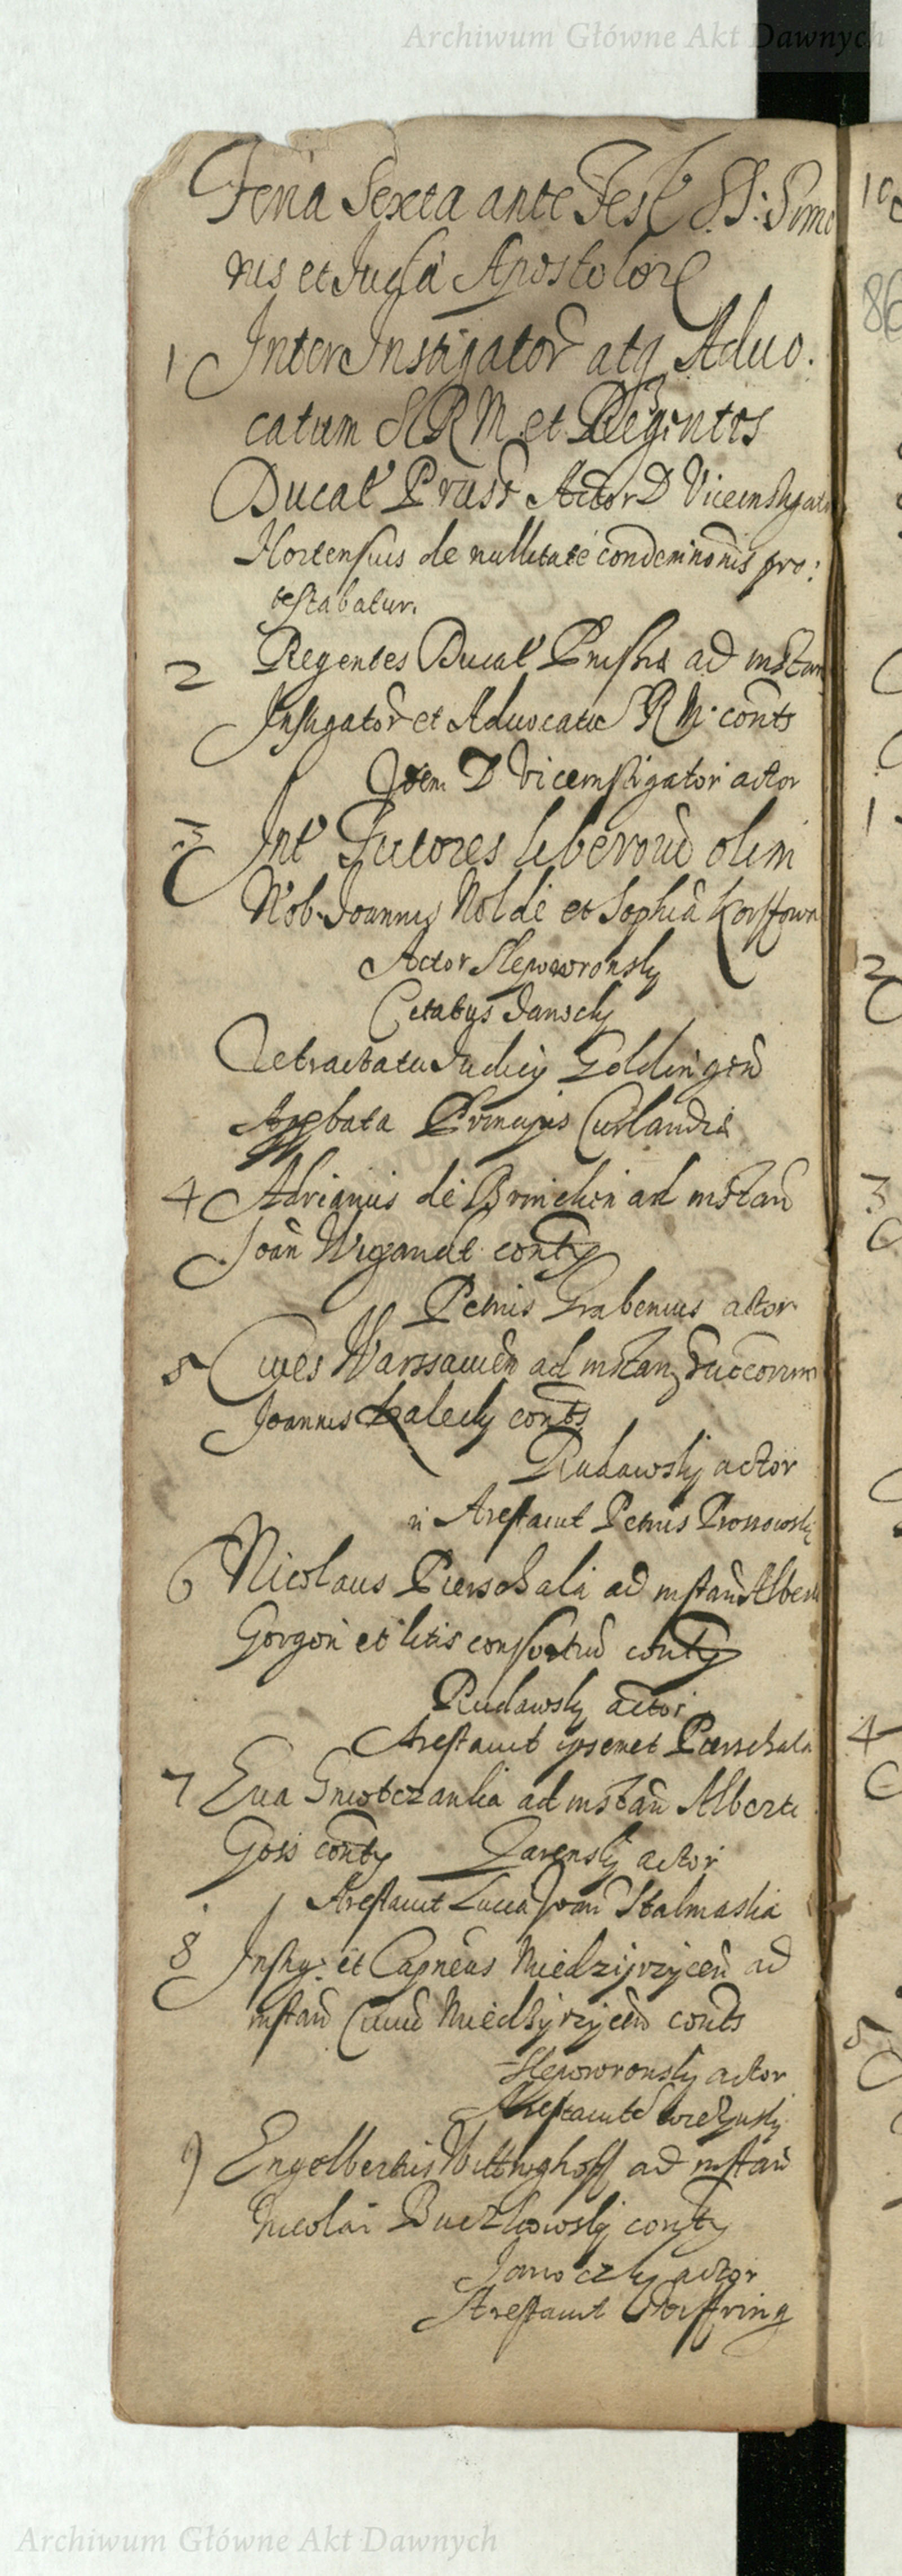 Archiwum Główne Akt Dawnych
Feria Sexta ante Fest SS: Simo
nis et Juda Apostolor
1 Inter Instigator atq Aduo.
catum S R M et Regentes
Ducat Pruss Actor D Viceinstigator
Hortensius de nullitate condemnonis pro:
testabatur.
2 Regentes Ducat Prussia ad instan
Instigator et Aduocatu S R M conts
Idem D Viceinstigator actor
3 Int Tutores liberoru olim
Nob Joannis Nolde et Sophia Korffown
Actor Slepowronsky
Citatus Jansely
Retractatu Judicy Goldingen
Appbata Principis Curlandia
4 Adrianus de Brincken ad instan
Joan Wigandt conty
Petrus Grabenius actor
5 Ciues Warssauien ad instan Succorum
Joannis Zalesky conts
Rudawsky actor
Arestauit Petrus
6 Nicolaus Pierschala ad instan Alber
Gorgon et litis consortiu conty
Rudawsky actor
Arestauit ipsemet Pierschala
7 Eua Gniotczanka ad instan Alberti
Goss conty Zarensky actor
Arestauit Luca Joan Stalmaska
8 Instig: et Capneus Miedzyrzycen ad
instan Ciuiu Miedzyrzycen conts
Slepowronsky actor
Arestauit
9 Engelbertus Vittinghoff ad instan
Nicolai Buczkowsky conty
Janoczky actor
Arestauit
10
86
1
2
3
4
5
Archiwum Główne Akt Dawnych